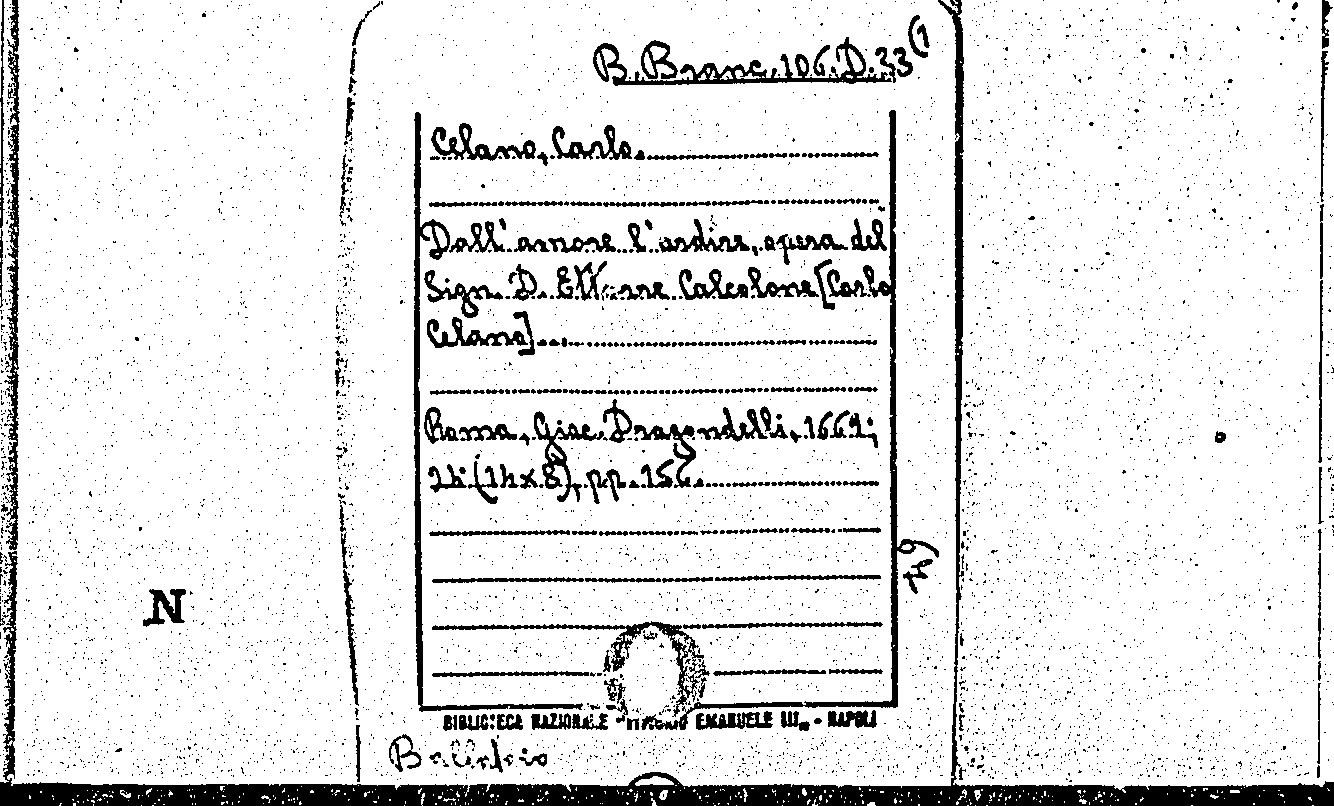 B. Branc. 106.D.33(1
Celano, Carlo.
Dall'amore l'ardire, opera del
Sign. D. Ettorre Calcolone [Carlo
Celano]...
Roma, Giac. Dragondelli, 1669;
24° (14x8), pp. 156.
64
N
BIBLIOTECA NAZIONALE "VITTORIO EMANUELE III„ - NAPOLI